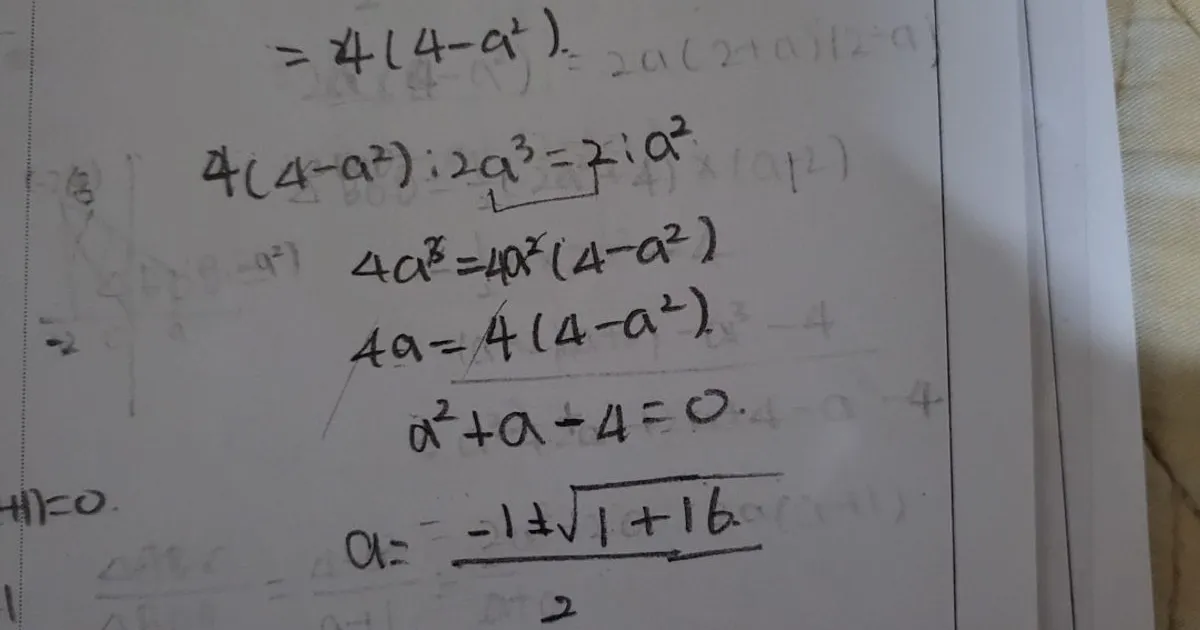 = 4(4-a²).
4(4-a²):2a³=2:a²
4a³=4a²(4-a²)
4a=4(4-a²)
-2
a²+a-4=0.
+1)=0.
a= (-1±√(1+16))/2